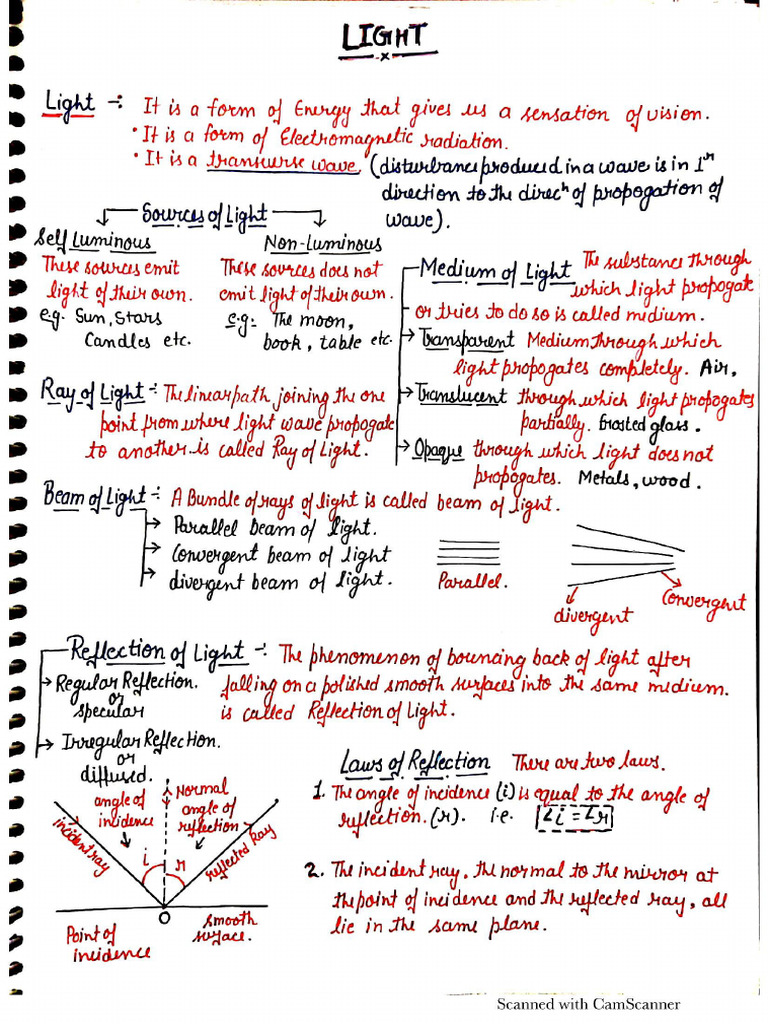 LIGHT
Light -: It is a form of Energy that gives us a sensation of vision.
• It is a form of Electromagnetic radiation.
• It is a transverse wave (disturbance produced in a wave is in ⊥r
direction to the direcn of propogation of
wave).
Sources of Light
Self Luminous
These sources emit
light of their own.
e.g. Sun, Stars
Candles etc.
Non-Luminous
These sources does not
emit light of their own.
e.g: The moon,
book, table etc.
Medium of Light The substance through
which light propogate
or tries to do so is called midium.
→ Transparent Medium through which
light propogates completely. Air,
→ Translucent through which light propogates
partially. Frosted glass.
→ Opaque through which light does not
propogates. Metals, wood.
Ray of Light -: The linear path joining the one
point from where light wave propogate
to another is called Ray of Light.
Beam of Light -: A Bundle of rays of light is called beam of light.
→ Parallel beam of light.
→ Convergent beam of light
→ divergent beam of light.
Parallel.
divergent
Convergent
Reflection of Light -: The phenomenon of bouncing back of light after
falling on a polished smooth surfaces into the same medium.
is called Reflection of Light.
→ Regular Reflection.
or
specular
→ Irregular Reflection.
or
diffused.
angle of
incidence
Normal
angle of
reflection
incident ray
reflected Ray
i
r
O
Point of
incidence
smooth
surface.
Laws of Reflection There are two laws.
1. The angle of incidence (i) is equal to the angle of
reflection. (r). i.e. ∠i = ∠r
2. The incident ray, the normal to the mirror at
the point of incidence and the reflected ray, all
lie in the same plane.
Scanned with CamScanner